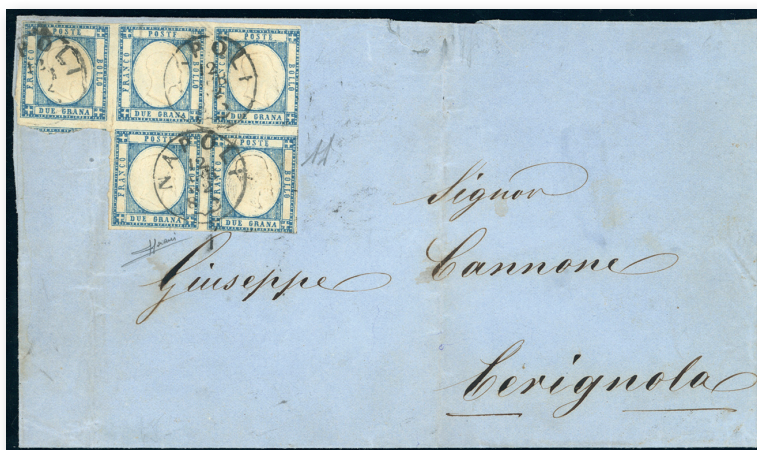 POSTE
FRANCO
BOLLO
DUE GRANA
POSTE
FRANCO
BOLLO
DUE GRANA
BOLLO
DUE GRANA
POSTE
FRANCO
BOLLO
DUE GRANA
POSTE
BOLLO
DUE GRANA
NAPOLI
Signor
Giuseppe Cannone
Cerignola